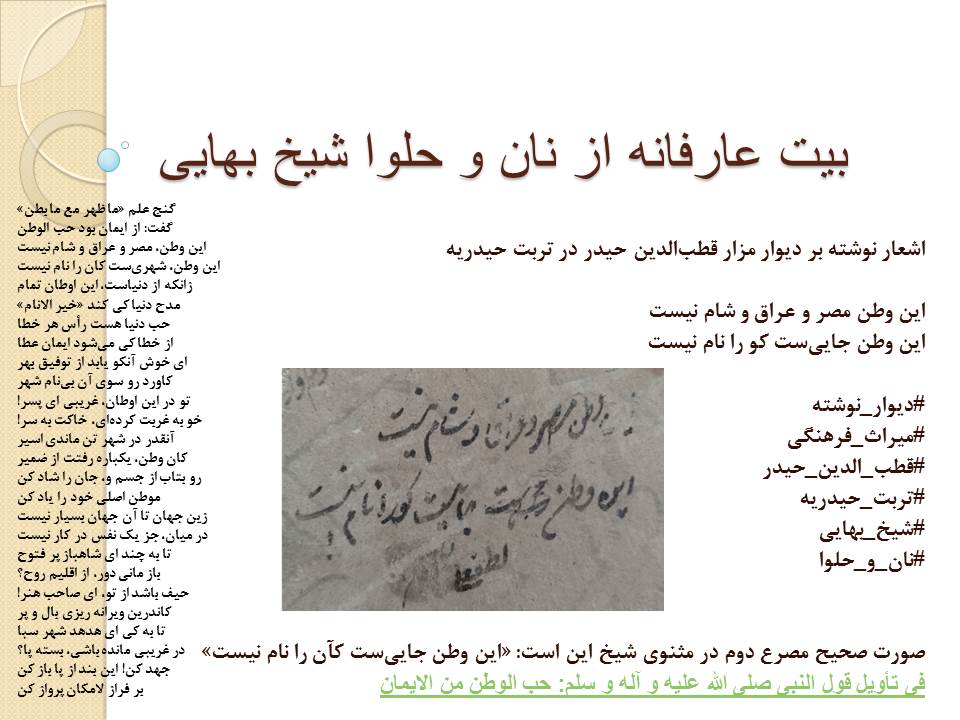 بیت عارفانه از نان و حلوا شیخ بهایی
اشعار نوشته بر دیوار مزار قطب‌الدین حیدر در تربت حیدریه
این وطن مصر و عراق و شام نیست
این وطن جایی‌ست کو را نام نیست
#دیوار_نوشته
#میراث_فرهنگی
#قطب_الدین_حیدر
#تربت_حیدریه
#شیخ_بهایی
#نان_و_حلوا
وطن مصر و عراق و شام نیست
این وطن جاییست کو را نام نیست
صورت صحیح مصرع دوم در مثنوی شیخ این است: «این وطن جایی‌ست کآن را نام نیست»
فی تأویل قول النبی صلی الله علیه و آله و سلم: حب الوطن من الایمان
گنج علم «ما ظهر مع ما بطن»
گفت: از ایمان بود حب الوطن
این وطن، مصر و عراق و شام نیست
این وطن، شهری‌ست کان را نام نیست
زانکه از دنیاست، این اوطان تمام
مدح دنیا کی کند «خیر الانام»
حب دنیا هست رأس هر خطا
از خطا کی می‌شود ایمان عطا
ای خوش آنکو یابد از توفیق بهر
کاورد رو سوی آن بی‌نام شهر
تو در این اوطان، غریبی ای پسر!
خو به غربت کرده‌ای، خاکت به سر!
آنقدر در شهر تن ماندی اسیر
کان وطن، یکباره رفتت از ضمیر
رو بتاب از جسم و، جان را شاد کن
موطن اصلی خود را یاد کن
زین جهان تا آن جهان بسیار نیست
در میان، جز یک نفس در کار نیست
تا به چند ای شاهباز پر فتوح
باز مانی دور، از اقلیم روح؟
حیف باشد از تو، ای صاحب هنر!
کاندرین ویرانه ریزی بال و پر
تا به کی ای هدهد شهر سبا
در غریبی مانده باشی، بسته پا؟
جهد کن! این بند از پا باز کن
بر فراز لامکان پرواز کن